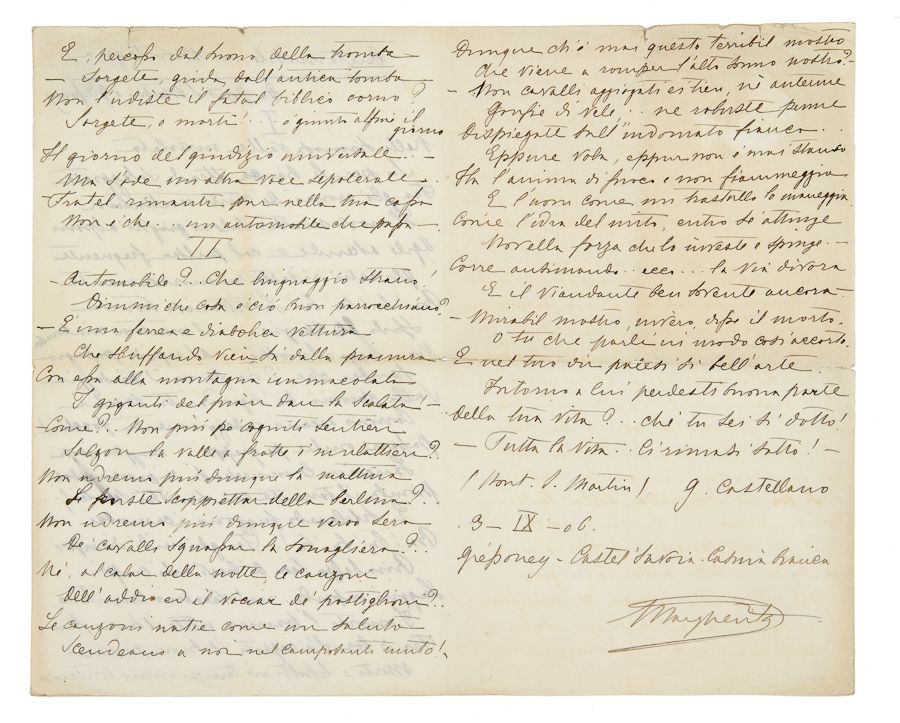 E, percosso dal suono della tromba
— Sorgete, grida dall'antica tomba
Non l'udiste il fatal biblico corno?
Sorgete, o morti!.. è giunto alfine il giorno
Il giorno del giudizio universale..—
Ma s'ode un'altra voce sepolcrale
Fratel rimanti pur nella tua cassa
Non è che... un automobile che passa—
II
— Automobile?.. Che linguaggio strano!
Dimmi che cosa è ciò buon parrocchiano?
— È una ferrea e diabolica vettura
Che sbuffando vien su dalla pianura
Con essa alla montagna immacolata
I giganti del pian dan la scalata!—
— Come?.. Non più pe' cogniti sentieri
Salgon la valle a frotte i mulattieri?.
Non udremo più dunque la mattina
Le fruste scoppiettar della berlina?.
Non udremo più dunque verso sera
De' cavalli squassar la sonagliera?..
Né, al calar della notte, le canzoni
Dell'addio ed il vociar de' postiglioni?..
Le canzoni natie come un saluto
Scendeano a noi nel camposanto muto!..
Dunque ch'è mai questo terribil mostro
Che viene a romper l'alto sonno nostro?—
— Non cavalli aggiogati ei tien, nè antenne
Gonfie di vele... ne robuste penne
Dispiegate sull'indomato fianco..
Eppure vola, eppur non è mai stanco
Ha l'anima di fuoco e non fiammeggia
E l'uom come un trastullo lo maneggia
Come l'idra del mito, entro sè attinge
Novella forza che lo investe e spinge.—
Corre ansimando.. ecco... la via divora
E il viandante ben sovente ancora—
— Mirabil mostro, invero, disse il morto.
O tu che parli in modo così accorto.
E nel tuo dir palesi sì bell'arte
Intorno a lui perdesti buona parte
Della tua vita?... chè tu sei sì dotto!
— Tutta la vita.. Ci rimasi sotto!—
(Pont. S. Martin) G. Castellano
3—IX—06.
Gressoney—Castel Savoia.
Margherita